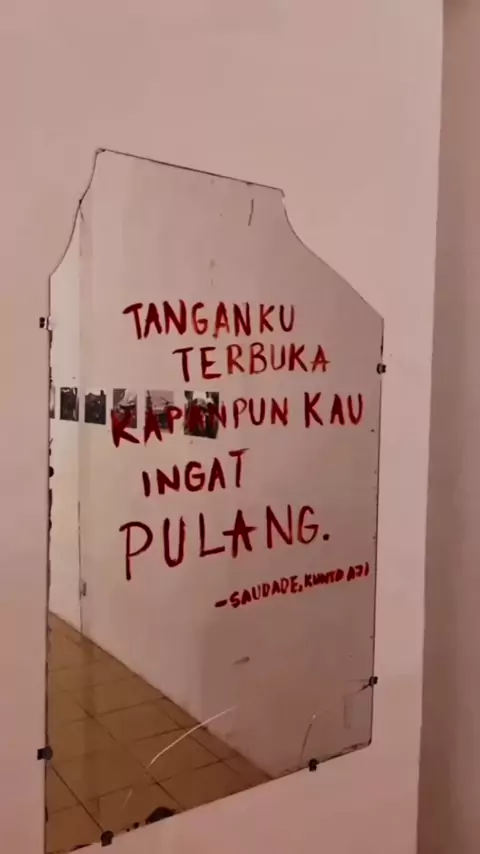 TANGANKU
TERBUKA
KAPANPUN KAU
INGAT
PULANG.
-SAUDADE, KUNTO AJI